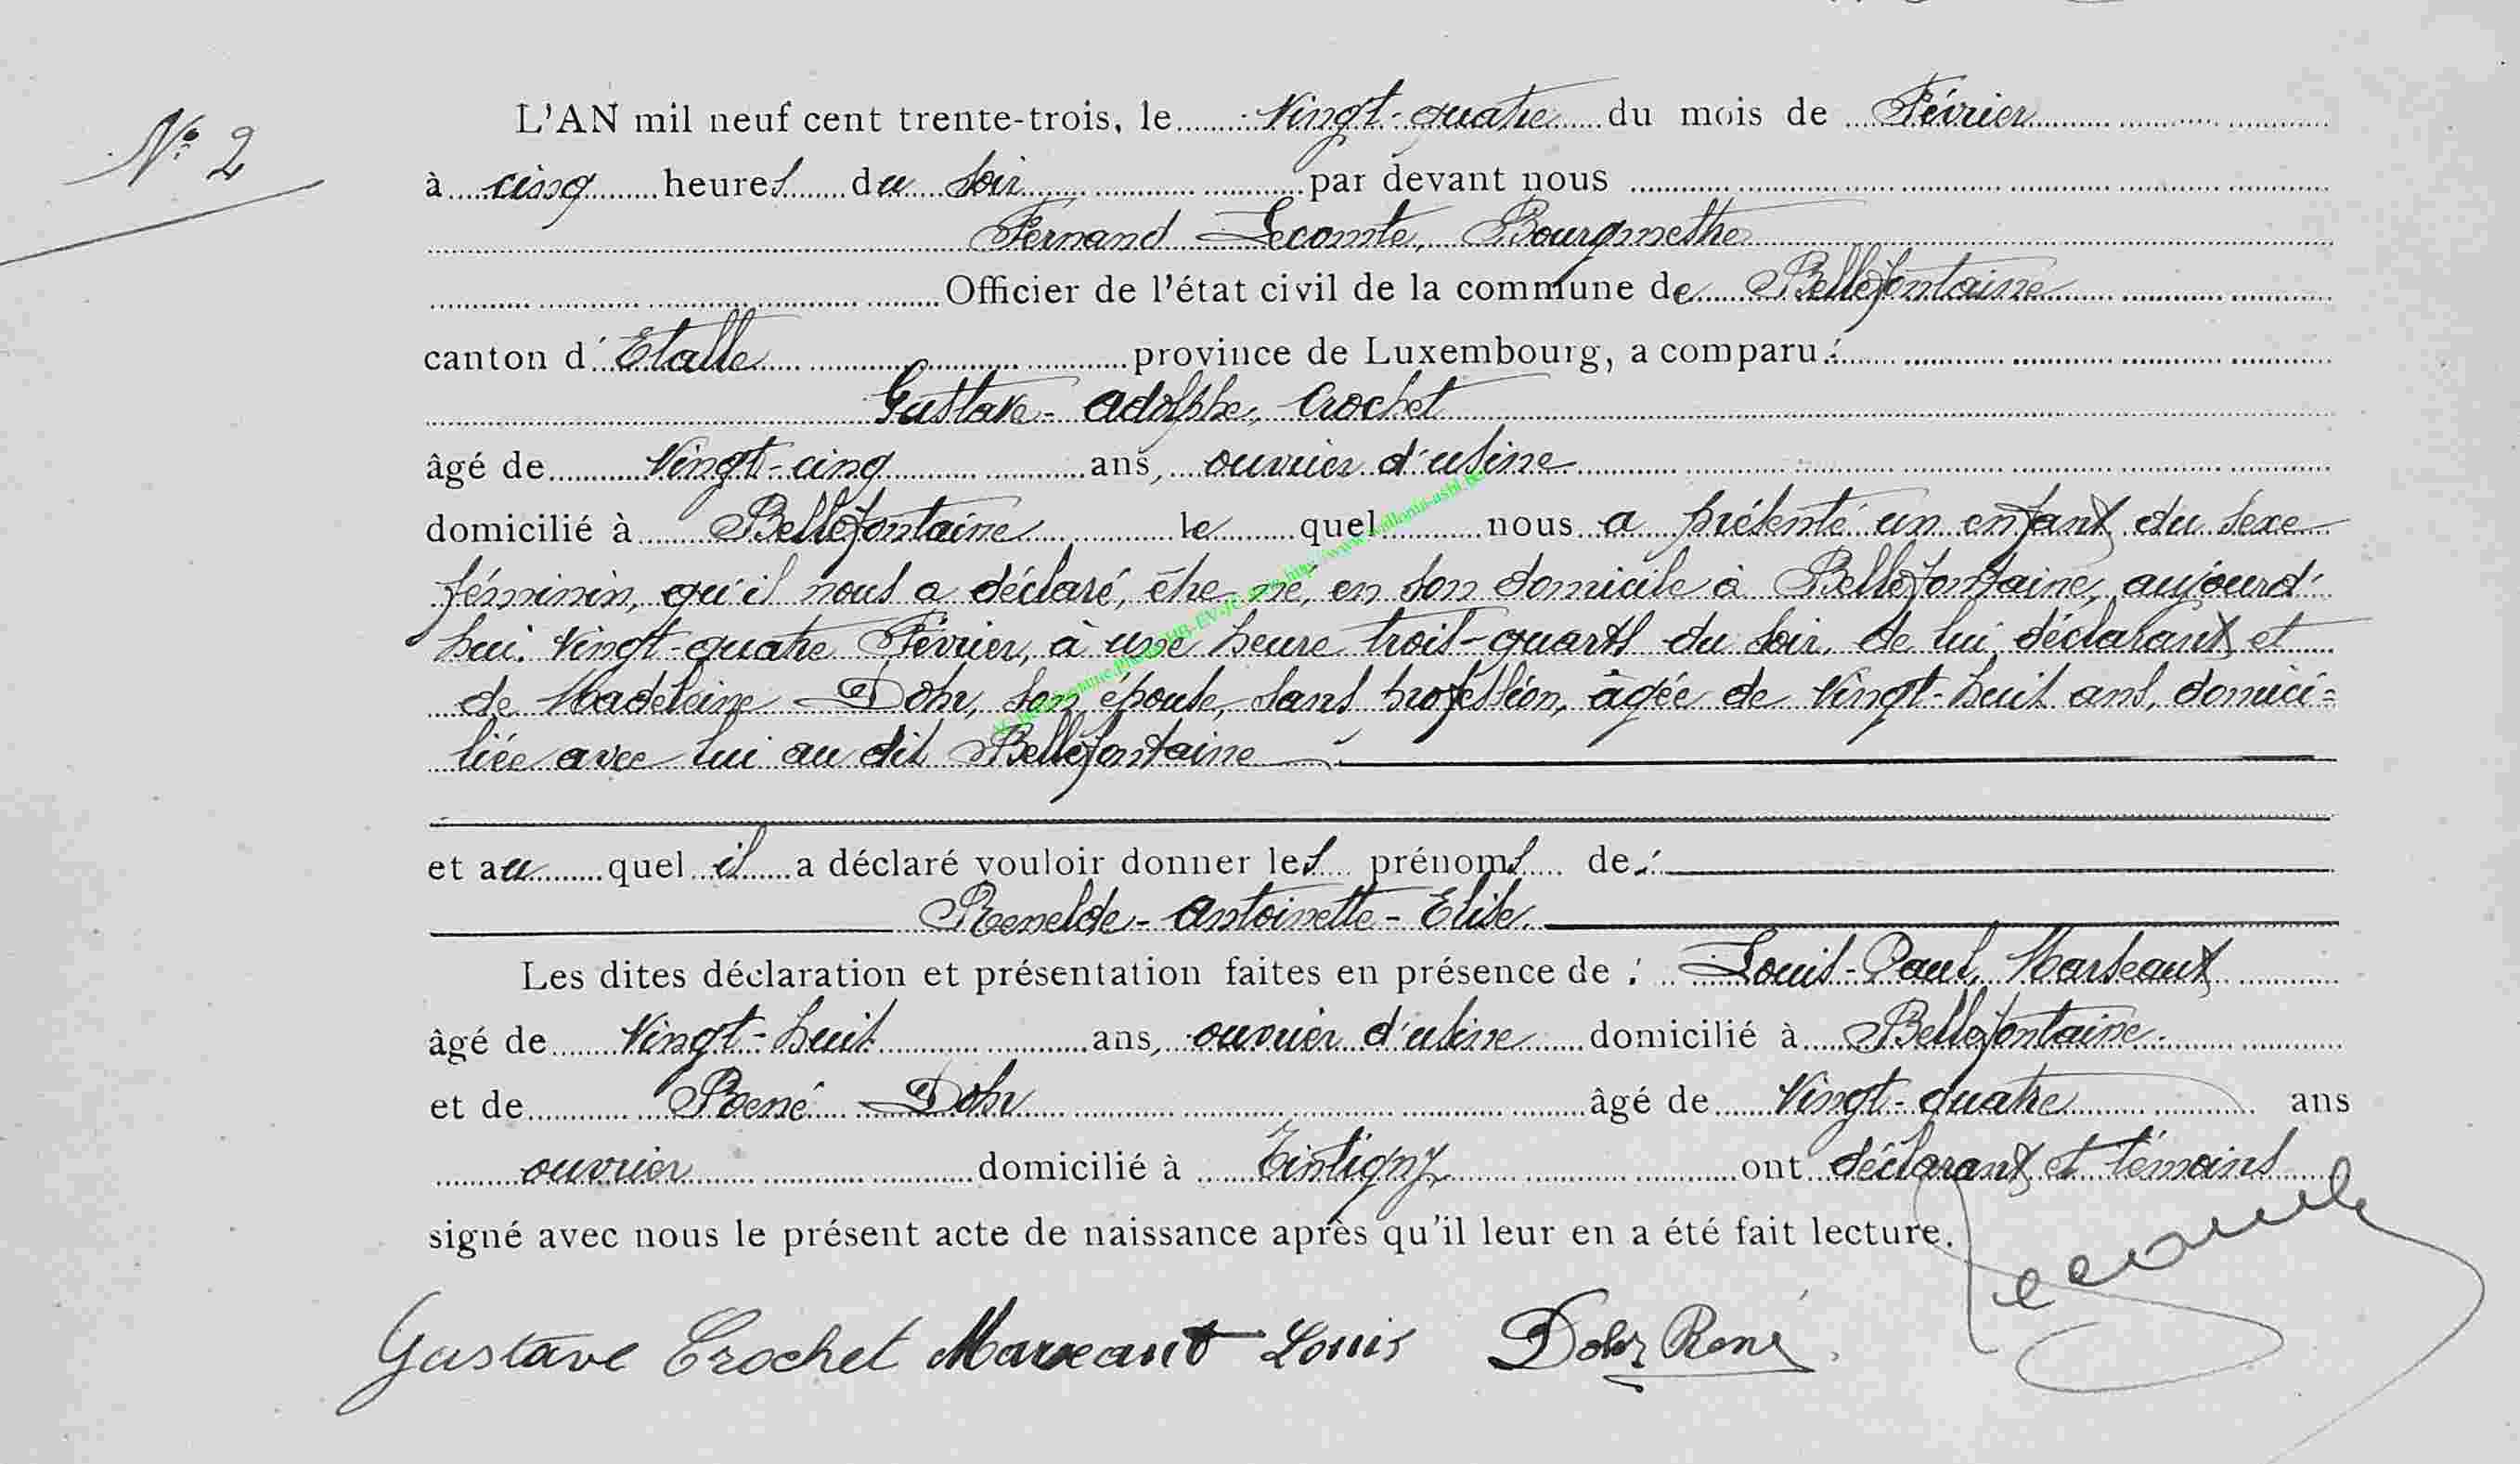 N° 2
L'AN mil neuf cent trente-trois, le Vingt-quatre du mois de Février
à cinq heures du soir par devant nous
Fernand Lecomte, Bourgmestre
Officier de l'état civil de la commune de Bellefontaine
canton d'Etalle province de Luxembourg, a comparu :
Gustave-Adolphe, Crochet
âgé de Vingt-cinq ans, ouvrier d'usine
domicilié à Bellefontaine le quel nous a présenté un enfant du sexe
féminin, qu'il nous a déclaré, être né, en son domicile à Bellefontaine, aujourd'
hui. Vingt-quatre Février, à une heure trois-quarts du soir, de lui déclarant et
de Madeleine Dohr, son épouse, sans profession, âgée de Vingt-huit ans, domici=
liée avec lui au dit Bellefontaine
et au quel il a déclaré vouloir donner les prénoms de :
Renelde-Antoinette-Elise.
Les dites déclaration et présentation faites en présence de : Louis-Paul, Marseaut
âgé de Vingt-huit ans, ouvrier d'usine domicilié à Bellefontaine
et de René Dohr âgé de Vingt-quatre ans
ouvrier domicilié à Tintigny ont déclarant et témoins
signé avec nous le présent acte de naissance après qu'il leur en a été fait lecture.
Lecomte
Gustave Crochet Marseaut Louis Dohr René